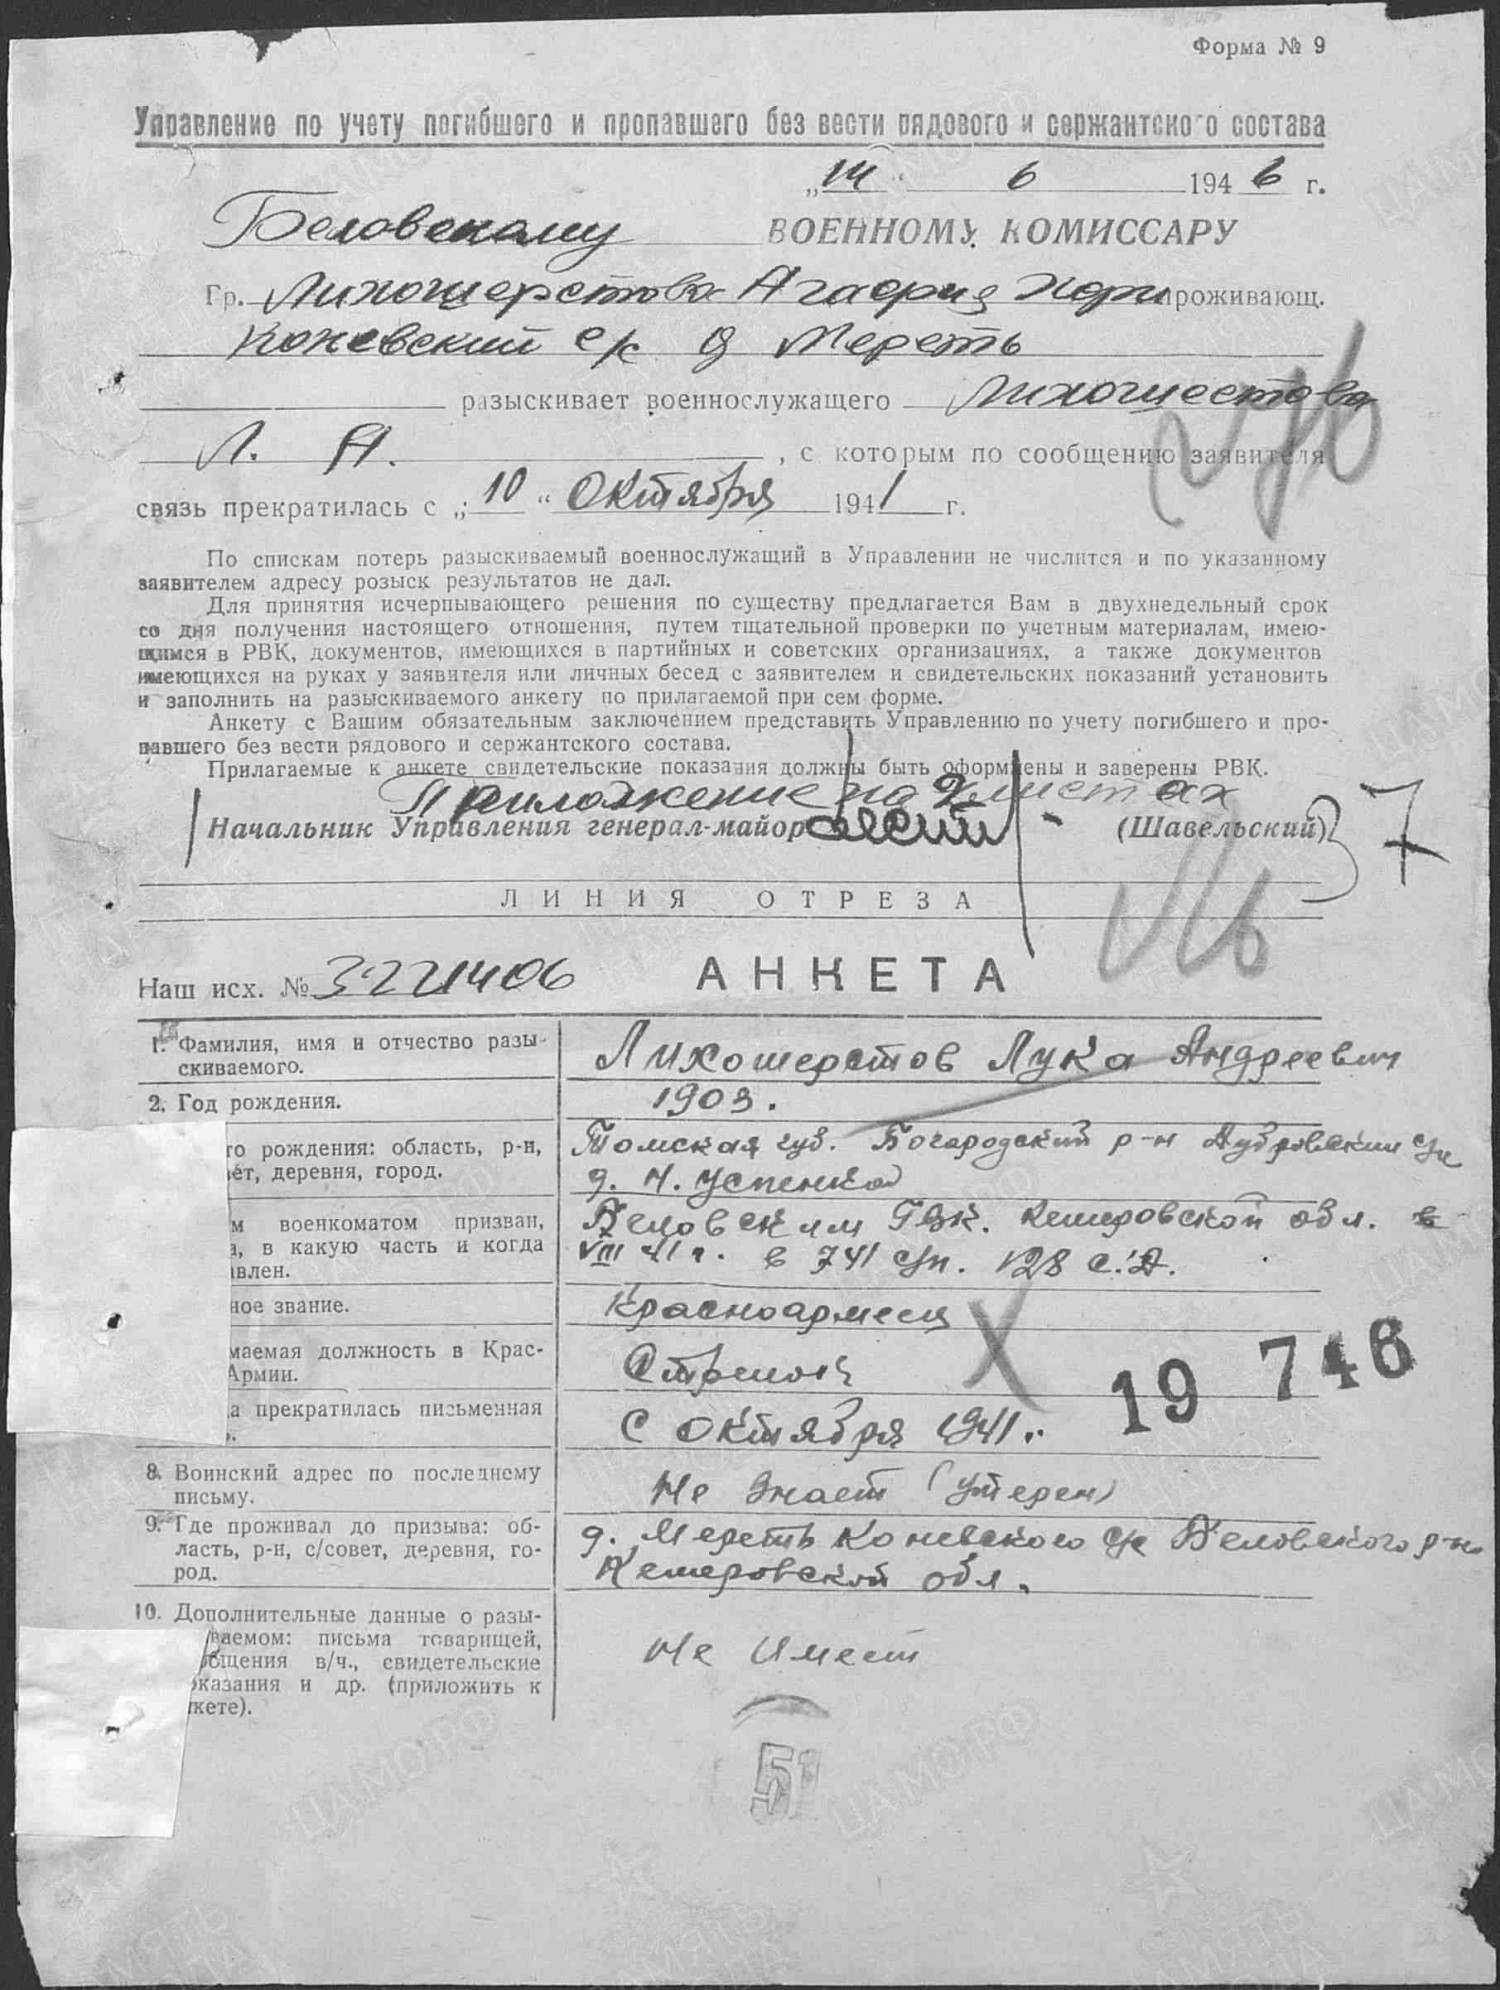 Форма № 9
Управление по учету погибшего и пропавшего без вести рядового и сержантского состава
„14“ 6 1946 г.
Беловскому ВОЕННОМУ КОМИССАРУ
Гр. Лихошерстова Агафия проживающ.
с/с д Мереть
разыскивает военнослужащего Лихошестова
Л. А. , с которым по сообщению заявителя
связь прекратилась с „10“ Октября 1941 г.
По спискам потерь разыскиваемый военнослужащий в Управлении не числится и по указанному
заявителем адресу розыск результатов не дал.
Для принятия исчерпывающего решения по существу предлагается Вам в двухнедельный срок
со дня получения настоящего отношения, путем тщательной проверки по учетным материалам, имею-
щимся в РВК, документов, имеющихся в партийных и советских организациях, а также документов
имеющихся на руках у заявителя или личных бесед с заявителем и свидетельских показаний установить
и заполнить на разыскиваемого анкету по прилагаемой при сем форме.
Анкету с Вашим обязательным заключением представить Управлению по учету погибшего и про-
павшего без вести рядового и сержантского состава.
Прилагаемые к анкете свидетельские показания должны быть оформлены и заверены РВК.
Приложение на 2 листах
Начальник Управления генерал-майор (Шавельский)
37
ЛИНИЯ ОТРЕЗА
Наш исх. № 3221406 АНКЕТА
1. Фамилия, имя и отчество разы-
скиваемого.
Лихошерстов Лука Андреевич
2. Год рождения.
1903.
го рождения: область, р-н,
вет, деревня, город.
Томская губ. Богородский р-н Дубровский с/с
д. Н. Успенка
м военкоматом призван,
а, в какую часть и когда
авлен.
Беловским ГВК. Кемеровской обл. в
VIII 41 г. в 741 сп. 128 с.д.
ное звание.
Красноармеец
маемая должность в Крас-
Армии.
Стрелок
19 746
а прекратилась письменная
С Октября 1941г.
8. Воинский адрес по последнему
письму.
Не знает (утерен)
9. Где проживал до призыва: об-
ласть, р-н, с/совет, деревня, го-
род.
д. Мереть Коневского с/с Беловского р-на
Кемеровской обл.
10. Дополнительные данные о разы-
ваемом: письма товарищей,
общения в/ч., свидетельские
оказания и др. (приложить к
кете).
Не Имеет
51